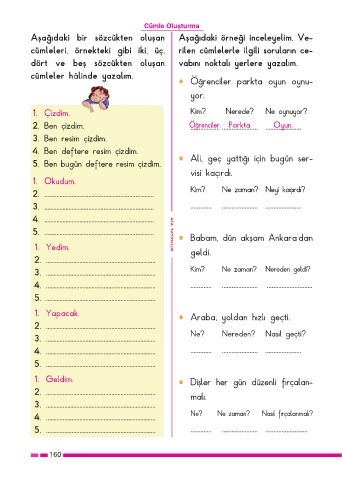 Cümle Oluşturma
Aşağıdaki bir sözcükten oluşan
cümleleri, örnekteki gibi iki, üç,
dört ve beş sözcükten oluşan
cümleler hâlinde yazalım.
1. Çizdim.
2. Ben çizdim.
3. Ben resim çizdim.
4. Ben deftere resim çizdim.
5. Ben bugün deftere resim çizdim.
1. Okudum.
2. ..........
3. ..........
4. ..........
5. ..........
1. Yedim.
2. ..........
3. ..........
4. ..........
5. ..........
1. Yapacak.
2. ..........
3. ..........
4. ..........
5. ..........
1. Geldim.
2. ..........
3. ..........
4. ..........
5. ..........
ATA YAYINCILIK
Aşağıdaki örneği inceleyelim. Ve-
rilen cümlelerle ilgili soruların ce-
vabını noktalı yerlere yazalım.
Öğrenciler parkta oyun oynu-
yor.
Kim? Nerede? Ne oynuyor?
Öğrenciler. Parkta. Oyun.
Ali, geç yattığı için bugün ser-
visi kaçırdı.
Kim? Ne zaman? Neyi kaçırdı?
.......... .......... ..........
Babam, dün akşam Ankara'dan
geldi.
Kim? Ne zaman? Nereden geldi?
.......... .......... ..........
Araba, yoldan hızlı geçti.
Ne? Nereden? Nasıl geçti?
.......... .......... ..........
Dişler her gün düzenli fırçalan-
malı.
Ne? Ne zaman? Nasıl fırçalanmalı?
.......... .......... ..........
160